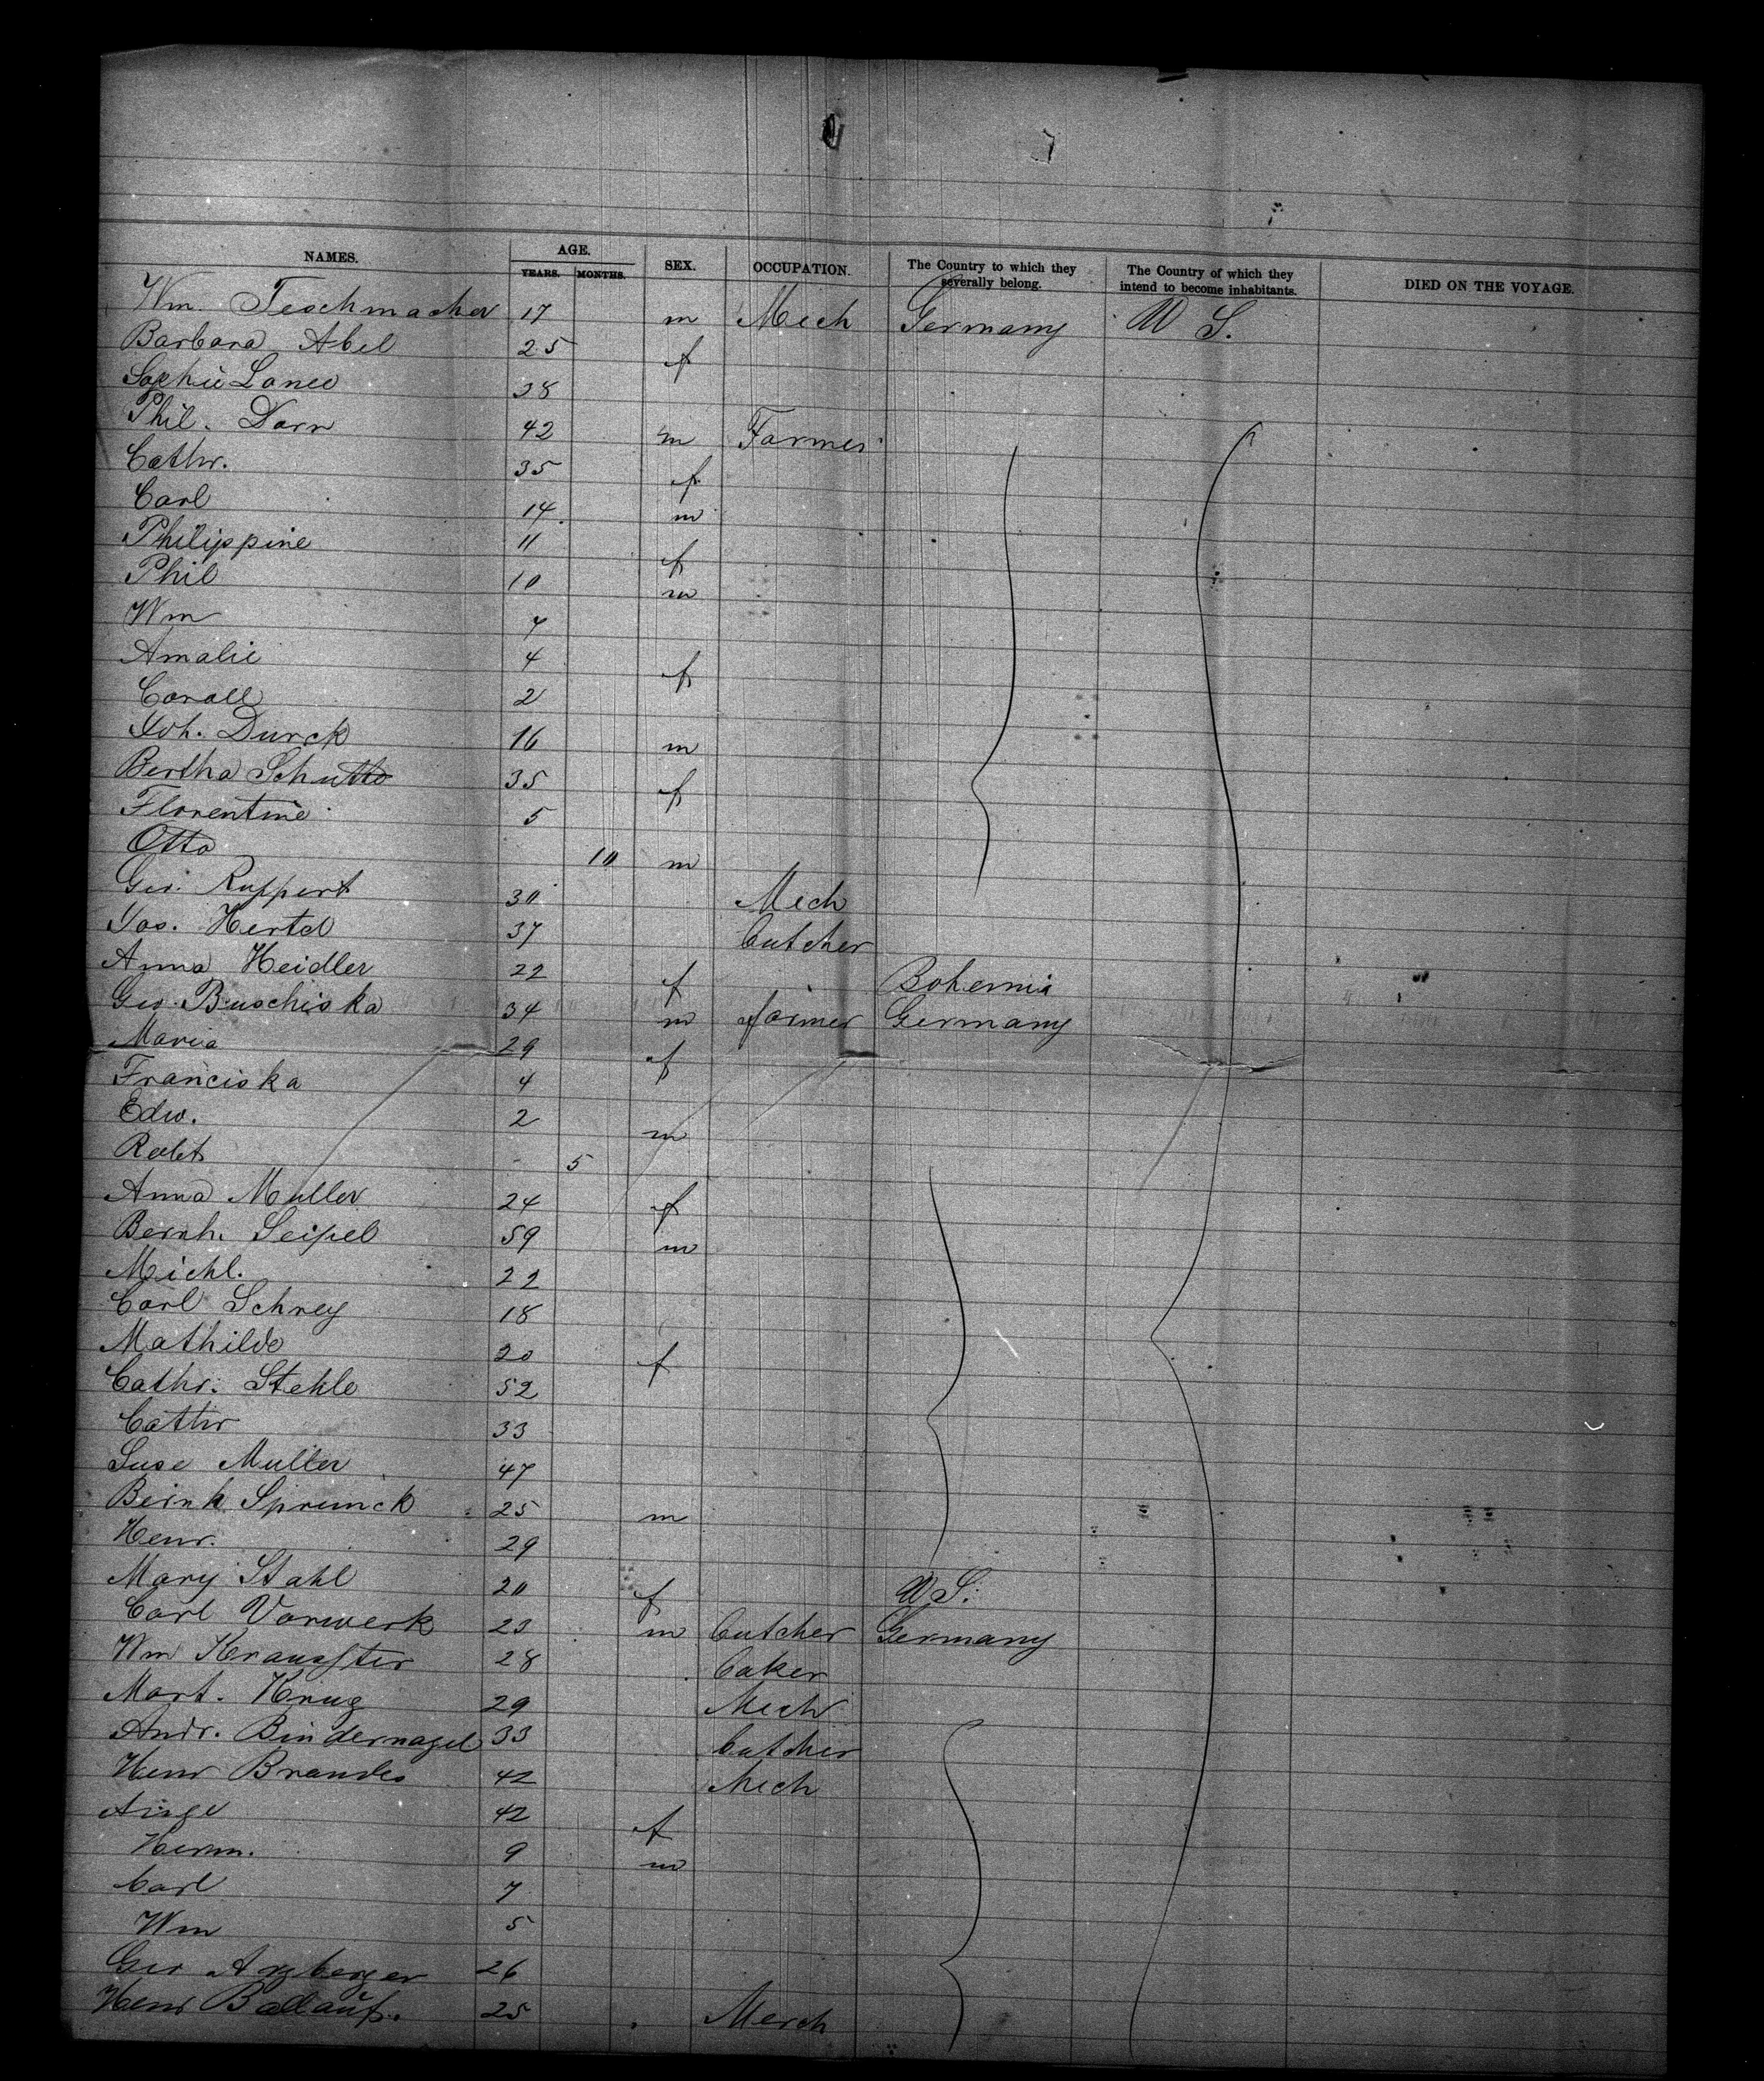 NAMES. AGE. YEARS. MONTHS. SEX. OCCUPATION. The Country to which they severally belong. The Country of which they intend to become inhabitants. DIED ON THE VOYAGE.
Wm. Teschmacher 17 m Mech Germany U S.
Barbara Abel 25 f
Sophie 38
Phil. Dorn 42 m Farmer
Cathr. 35 f
Carl 14 m
Philippine 11 f
Phil 10 m
Wm 7
Amalie 4 f
2
Joh. Durck 16 m
Bertha Schutte 35 f
Florentine 5
Otto 10 m
Geo. Ruppert 30 Mech
Jos. Hertel 37 butcher
Anna Heidler 22 f Bohemia
Geo. Buschiska 34 m farmer Germany
Maria 29 f
Franciska 4
Edw. 2 m
Robt - 5
Anna Muller 24 f
Bernh. Seipel 59 m
Michl. 22
Carl Schrey 18
Mathilde 20 f
Cathr. Stekle 52
Cathr 33
Suse Muller 47
Bernh Sprunck 25 m
Henr. 29
Mary Stahl 20 f U S.
Carl Vorwerk 23 m butcher Germany
Wm 28 baker
Mart. Krug 29 Mech
Andr. Bindernagel 33 butcher
Henr Brandes 42 Mech
42 f
Herm. 9 m
Carl 7
Wm 5
Geo 26
Henr Ballauf. 25 Merch